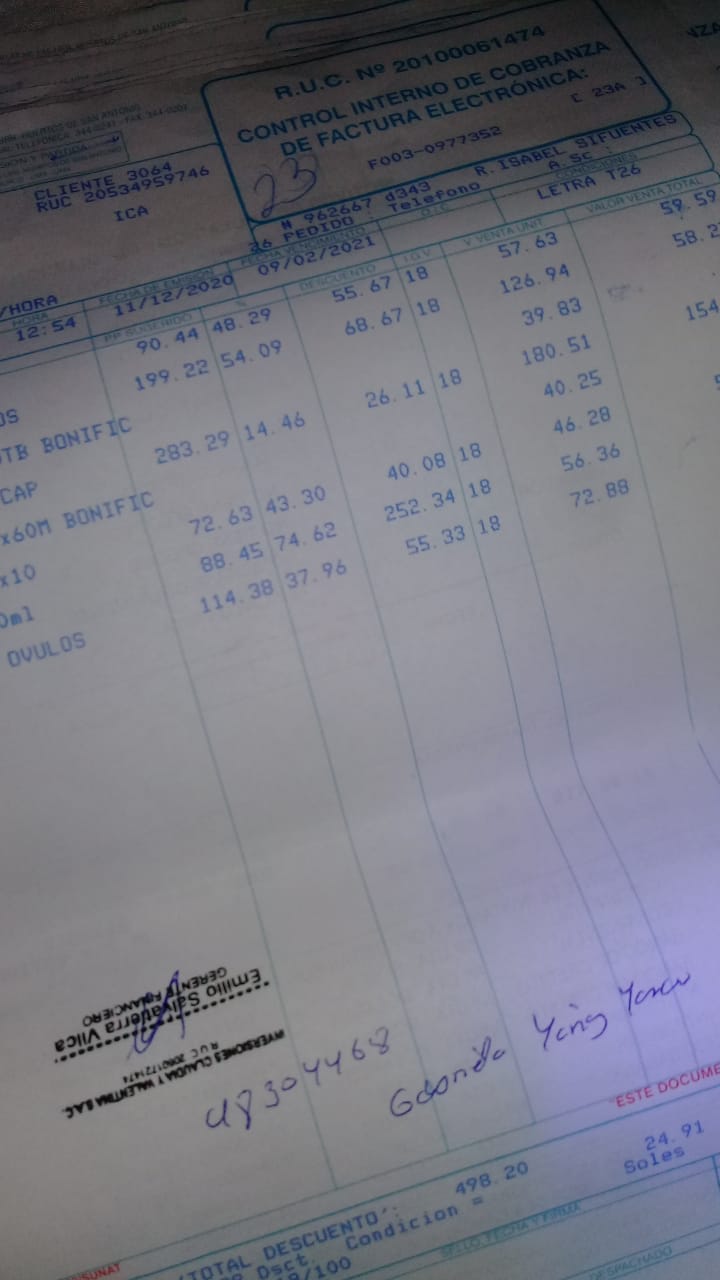 R.U.C. Nº 20100061474
CONTROL INTERNO DE COBRANZA
DE FACTURA ELECTRÓNICA:
F003-0977352 [ 23A ]
23
CLIENTE 3064
RUC 20534959746
ICA
N 962667 d343 R. ISABEL SIFUENTES
26 PEDIDO : Telefono A. Sc :
CONDICIONES
LETRA T26
/HORA
HORA FECHA DE EMISIÓN FECHA VENCIMIENTO O.I.C.
12:54 11/12/2020 09/02/2021
PP SUGERIDO % DESCUENTO I.G.V. V.VENTA UNIT. VALOR VENTA TOTAL
90.44 48.29 55.67 18 57.63 59.59
OS 199.22 54.09 68.67 18 126.94 58.2
TB BONIFIC 39.83
CAP 283.29 14.46 26.11 18 180.51 154
x60M BONIFIC 40.25
x10 72.63 43.30 40.08 18 46.28
0ml 88.45 74.62 252.34 18 56.36
OVULOS 114.38 37.96 55.33 18 72.88
INVERSIONES CLAUDIA Y VALENTINA S.A.C.
Emilio Salvaterra Vilca
GERENTE FINANCIERO
48304468
ESTE DOCUME
TOTAL DESCUENTO : 498.20 24.91
Dsct. Condicion = Soles
/100
SELLO, FECHA Y FIRMA
DESPACHADO
SUNAT